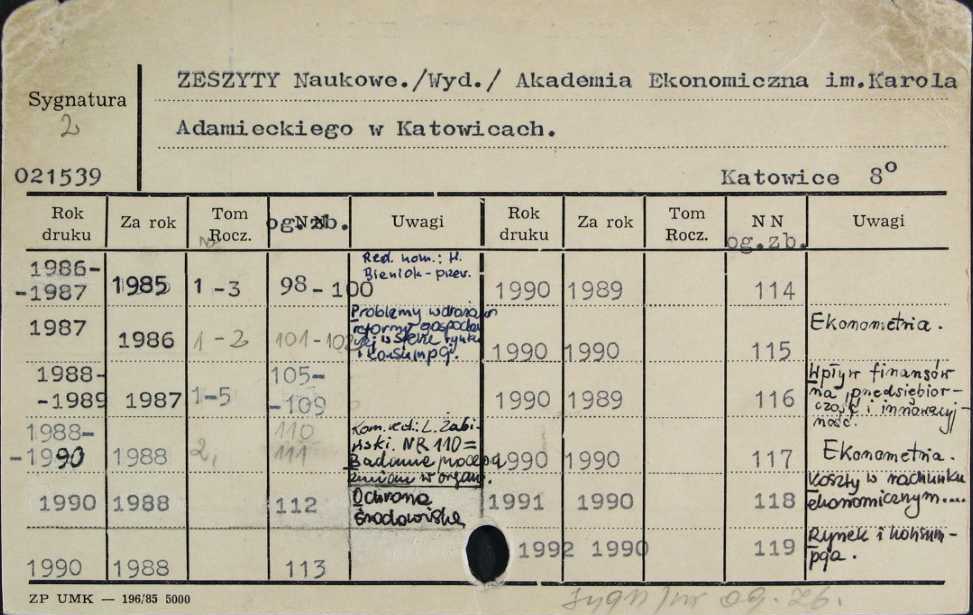 ZESZYTY Naukowe./Wyd./ Akademia Ekonomiczna im.Karola
Sygnatura
2
Adamieckiego w Katowicach.
021539
Katowice 8º
Rok druku Za rok Tom Rocz. NN og.zb. Uwagi Rok druku Za rok Tom Rocz. NN og.zb. Uwagi
1986-
-1987 1985 1-3 98-100 Red. nom.: H.
Bieniok-przew. 1990 1989 114
1987 1986 1-2 101-102 Problemy wdrażan
reformy gospodar
w sferze rynku
i konsumpcji. 1990 1990 115 Ekonometria.
1988-
-1989 1987 1-5 105-
-109 1990 1989 116 Wpływ finansów
na przedsiębior-
czość i innowacyj-
ność.
1988-
-1990 1988 2, 110
111 Kom. red.: L. Żabi-
ński. NR 110=
Badanie proceso
zmian w organ. 1990 1990 117 Ekonometria.
1990 1988 112 Ochrona
środowiska 1991 1990 118 Koszty w rachunku
ekonomicznym....
1990 1988 113 1992 1990 119 Rynek i konsum-
pcja.
ZP UMK — 196/85 5000
og. zb.